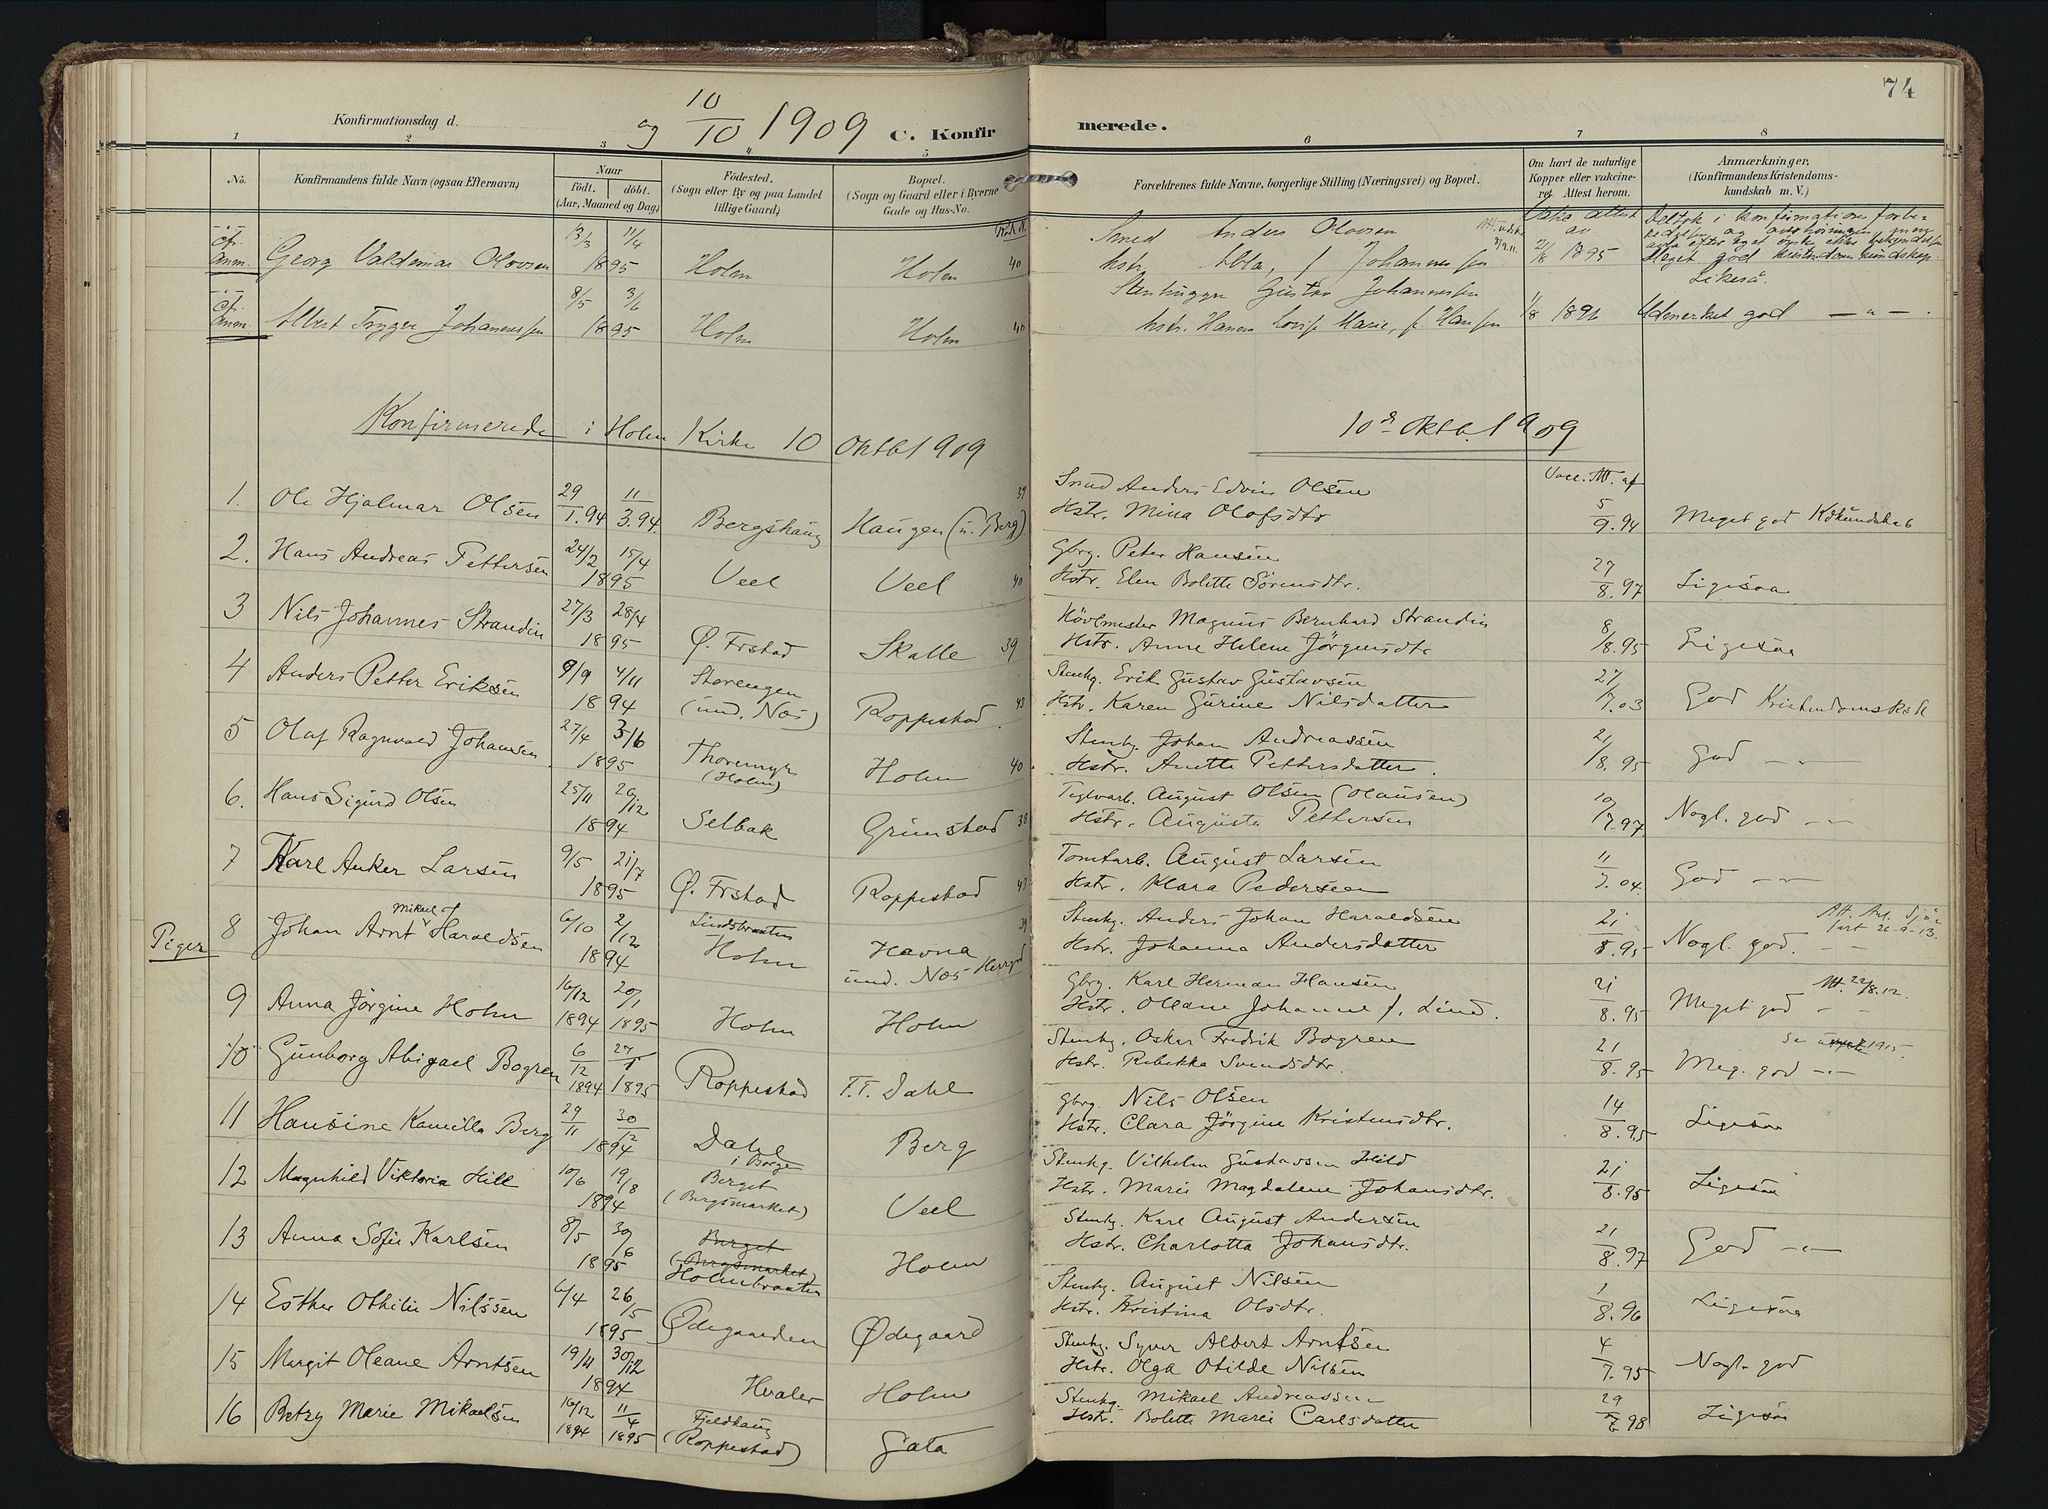 74
10
og 10 1909
Konfirmationsdag d.
C. Konfirmerede.
1 2 3 4 5 6 7 8
No.
Konfirmandens fulde Navn (ogsaa Efternavn)
Naar
født. døbt.
(Aar, Maaned og Dag)
Fødested.
(Sogn eller By og paa Landet
tillige Gaard)
Bopæl.
(Sogn og Gaard eller i Byerne
Gade og Hus-No.
Forældrenes fulde Navne, borgerlige Stilling (Næringsvei) og Bopæl.
Om havt de naturlige
Kopper eller vakcine-
ret. Attest herom.
Anmærkninger.
(Konfirmandens Kristendoms-
kundskab m. V.)
cfr. anm. Georg Valdemar Olovsen 13/3 11/4 1895 Holm Holm 40 Smed Anders Olovsen
1895 Meget god Kristendomskundskap.
Likeså.
cfr. anm. Albert Trygve Johannessen 8/5 3/6 1895 Holm Holm 40 Stenhugger Gustav Johannessen
1/8 1896 Udmerket god — " — .
Konfirmerede i Holm Kirke 10 Oktb 1909
10de Oktb. 1909
Vacc. Att. af
1. Ole Hjalmar Olsen 29/1.94 11/3.94 Bergshaug Haugen (u. Berg) 39 Smed Anders Edvin Olsen
Hstr. Mina Olofsdtr 5/9.94 Meget god Kdkundskab
2. Hans Andreas Pettersen 24/2 15/4 1895 Veel Veel 40 Gbrg. Peter Hansen
Hstr. Elen Bolette Sørensdtr. 27/8.97 Ligesaa
3 Nils Johannes Strandin 27/3 28/4 1895 Ø. Frstad Skalle 39 Hövlmester Magnus Bernhard Strandin
Hstr. Anne Helene Jörgensdtr 8/8.95 Ligesaa
4 Anders Petter Eriksen 9/9 4/11 1894 Storengen (und. Næs) Roppestad 43 Stenhg. Erik Gustav Gustavsen
Hstr. Karen Gurine Nilsdatter 27/7.03 God Kristendomsksk
5 Olaf Ragnvald Johansen 27/4 3/6 1895 Thoremyr (Holm) Holm 40 Stenhg. Johan Andreassen
Hstr. Anette Pettersdatter. 21/8.95 God — " —
6. Hans Sigurd Olsen 25/11 26/12 1894 Selbak Grimstad 38 Teglvarb. August Olsen (Olausen)
Hstr. Augusta Pettersen 10/7.97 Nogl. god — " —
7 Karl Anker Larsen 9/5 21/7 1895 Ø. Frstad Roppestad 43 Tomtarb. August Larsen
Hstr. Klara Pedersen 11/7.04. God — " —
8 Johan Arnt Mikael Haraldsen 6/10 2/12 1894 Lindsbraaten Holm Havna und. Næs Herrgd 39 Stenhg. Anders Johan Haraldsen
Hstr. Johanna Andersdatter 21/8.95 Nogl. god. — —
Piger
9 Anna Jørgine Holm 16/12 1894 20/1 1895 Holm Holm Gbrg. Karl Herman Hansen
Hstr. Oleane Johanne f. Lind. 21/8.95 Meget god — — Att. 22/8.12.
10 Gunborg Abigael Bogren 6/12 1894 27/1 1895 Roppestad T.T. Dahl Stenhg. Oskar Fredrik Bogren
Hstr. Rebekka Svendsdtr. 21/8.95 Meg. god — " —
11 Hansine Kamilla Berg 29/11 30/12 1894 Dahl i Borge Berg Gbrg. Nils Olsen
Hstr. Clara Jörgine Kristensdtr. 14/8.95 Ligesaa
12 Magnhild Viktoria Hill 10/6 19/8 1894 Berget (Bergsmarket) Veel Stenhg. Vilhelm Gustavsen Hild
Hstr. Marie Magdalene Johansdtr. 21/8.95 Ligesaa
13 Anna Sofie Karlsen 8/5 30/6 1895 Berget (Bergsmarket) Holmbraaten Holm Stenhg. Karl August Andersen
Hstr. Charlotta Johansdtr. 21/8.97 God — " —
14 Esther Othilie Nilssen 6/4 26/5 1895 Ødegaarden Ødegaard Stenhg. August Nilsen
Hstr. Kristina Olsdtr. 1/8.96 Ligesaa
15 Margit Oleane Arntsen 19/11 30/12 1894 Hvaler Holm Stenhg. Syver Albert Arntsen
Hstr. Olga Otilde Nilsen 4/7.95 Nogl. god
16 Betzy Marie Mikaelsen 16/12 1894 11/4 1895 Fjeldhaug (Roppestad) Gata Stenhg. Mikael Andreassen
Hstr. Bolette Marie Carlsdatter 29/7 98 Ligesaa